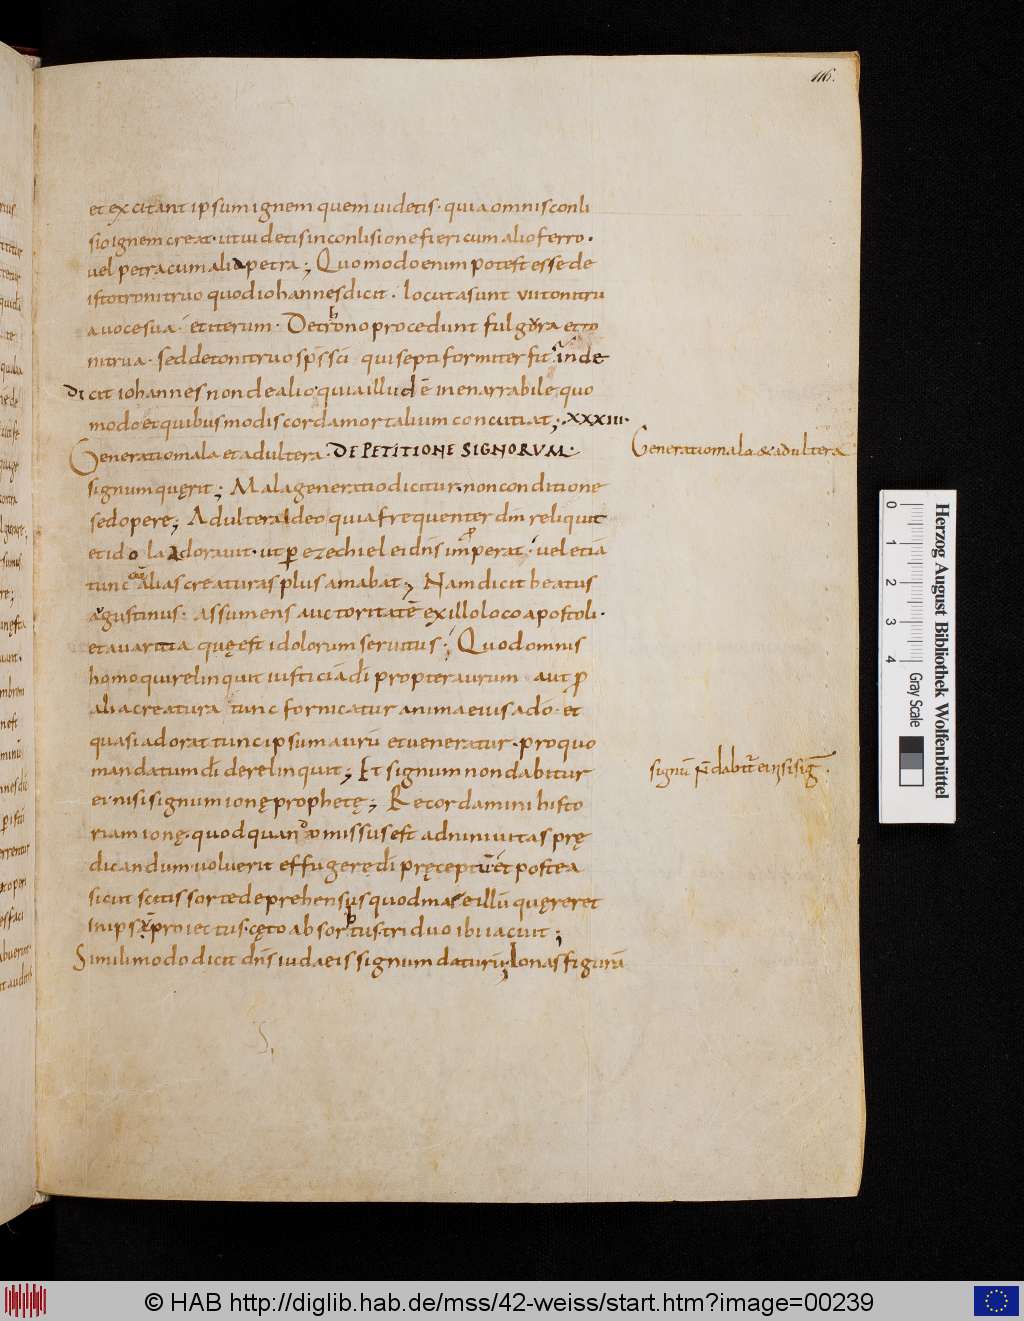 116.
et excitant ipsum ignem quem uidetis · quia omnis conli
sio ignem creat · ut uidetis in conlisione fieri cum alio ferro ·
uel petra cum alia petra ; Quomodo enim potest esse de
isto tronitruo quod iohannes dicit · locuta sunt vii tonitru
a uoce sua · et iterum · De throno procedunt fulgura et to
nitrua · sed de tonitruo sp̄s s̄ci qui septiformiter fit · inde
dicit iohannes non de alio · quia illud ē inenarrabile quo
modo et quibus modis corda mortalium concutiat ; · XXXIII ·
Generatio mala et adultera · DE PETITIONE SIGNORUM ·
signum quęrit ; Mala generatio dicitur · non conditione
sed opere ; Adultera ideo quia frequenter dm̄ reliquit
et idola adorauit · ut per ezechiel ei dn̄s imperat · uel etiā
tunc cum alias creaturas plus amabat ; Nam dicit beatus
agustinus · assumens auctoritatē ex illo loco apostoli ·
et auaritia quę est idolorum seruitus ; Quod omnis
homo qui relinquit iusticiā dī propter aurum aut ꝓ
alia creatura tunc fornicatur anima eius a dō · et
quasi adorat tunc ipsum aurū et ueneratur · pro quo
mandatum dī derelinquit ; Et signum non dabitur
ei nisi signum ionę prophetę ; Recordamini histo
riam ionę · quod quando missus est ad niniuitas prę
dicandum · uoluerit effugere dī pręceptū et postea
sicut scitis sorte deprehensus quod mare illū quęreret
in ipsum proiectus · cęto absorbtus · triduo ibi iacuit ;
Simili modo dicit dn̄s iudaeis signum daturū ; Ionas figurā
Generatio mala & adultera
signū ñ dabit̄ ei nisi sig̅ ·
Herzog August Bibliothek Wolfenbüttel
0 1 2 3 4
Gray Scale
© HAB http://diglib.hab.de/mss/42-weiss/start.htm?image=00239